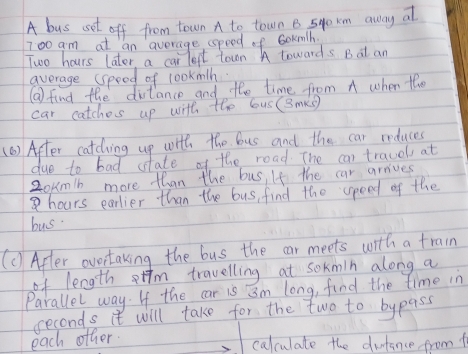 A bus set off from town A to town B 540 km away at
7:00 am at an average speed of 60kmlh.
Two hours later a car left town A towards B at an
average speed of 100kmlh.
(a) find the distance and the time from A when the
car catches up with the bus (3mks)
(b) After catching up with the bus and the car reduces
due to bad state of the road. The car travels at
20kmlh more than the bus, If the car arrives
2 hours earlier than the bus, find the speed of the
bus.
(c) After overtaking the bus the car meets with a train
of length m travelling at 50kmlh along a
Parallel way. If the car is 3m long, find the time in
seconds it will take for the two to bypass
each other.
calculate the distance from